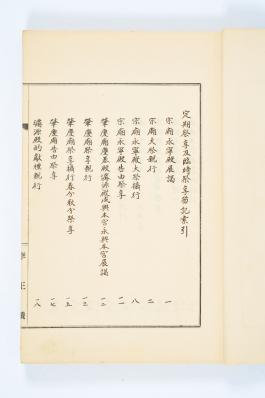 定期祭享及臨時祭享笏記索引
宗廟永寧殿展謁 一
宗廟大祭親行 二
宗廟永寧殿大祭攝行 八
宗廟永寧殿告由祭享 一一
肇慶廟慶基殿濬源殿咸興本宮永興本宮展謁 一二
肇慶廟祭享親行 一三
肇慶廟祭享攝行春分秋分祭享 一五
肇慶廟告由祭享 一七
濬源殿酌獻禮親行 一八
李王職